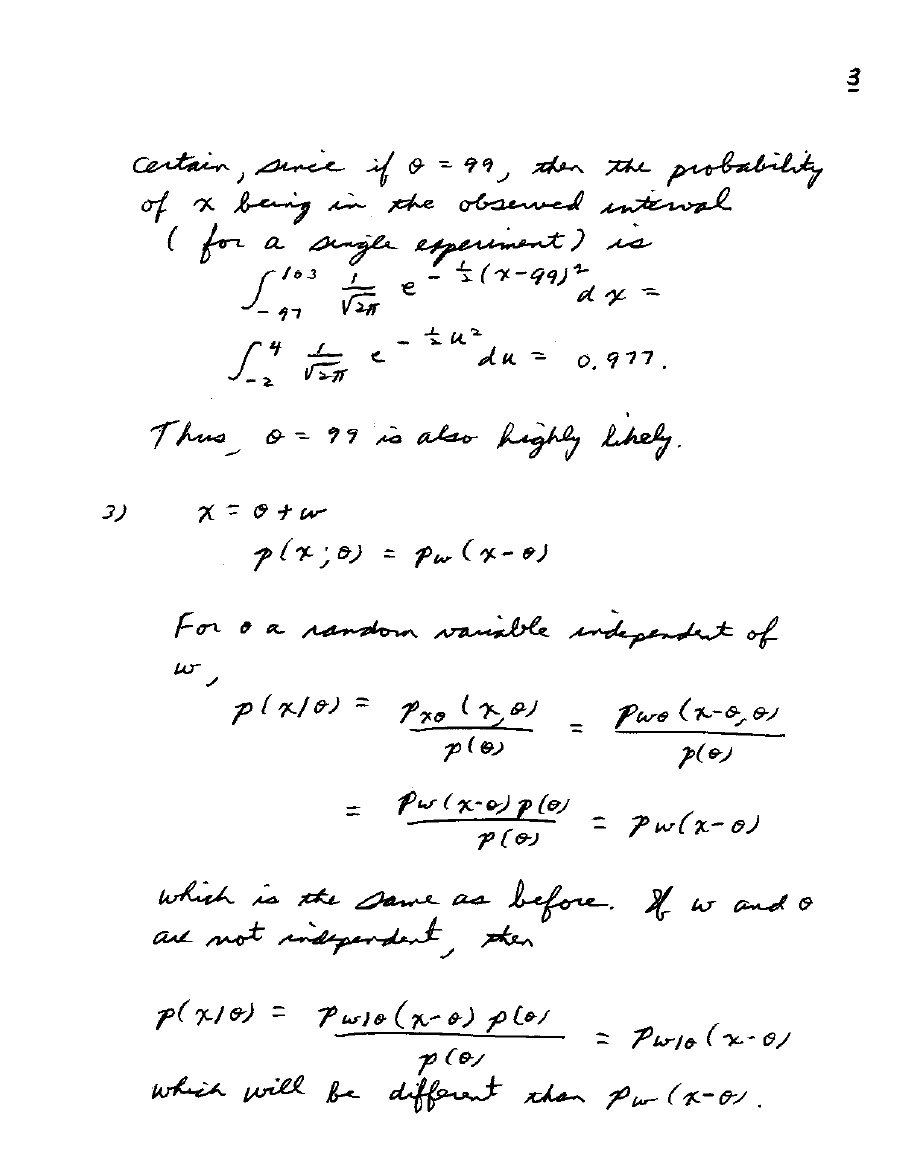 3
certain, since if θ = 99, then the probability
of x being in the observed interval
(for a single experiment) is
∫_{-97}^{103} 1/√2π e^{-½(x-99)²} dx =
∫_{-2}^{4} 1/√2π e^{-½u²} du = 0.977.
Thus, θ = 99 is also highly likely.
3) x = θ + w
p(x;θ) = p_w(x-θ)
For θ a random variable independent of
w,
p(x|θ) = p_{xθ}(x,θ)/p(θ) = p_{wθ}(x-θ,θ)/p(θ)
= p_w(x-θ)p(θ)/p(θ) = p_w(x-θ)
which is the same as before. If w and θ
are not independent, then
p(x|θ) = p_{w|θ}(x-θ) p(θ)/p(θ) = p_{w|θ}(x-θ)
which will be different than p_w(x-θ).